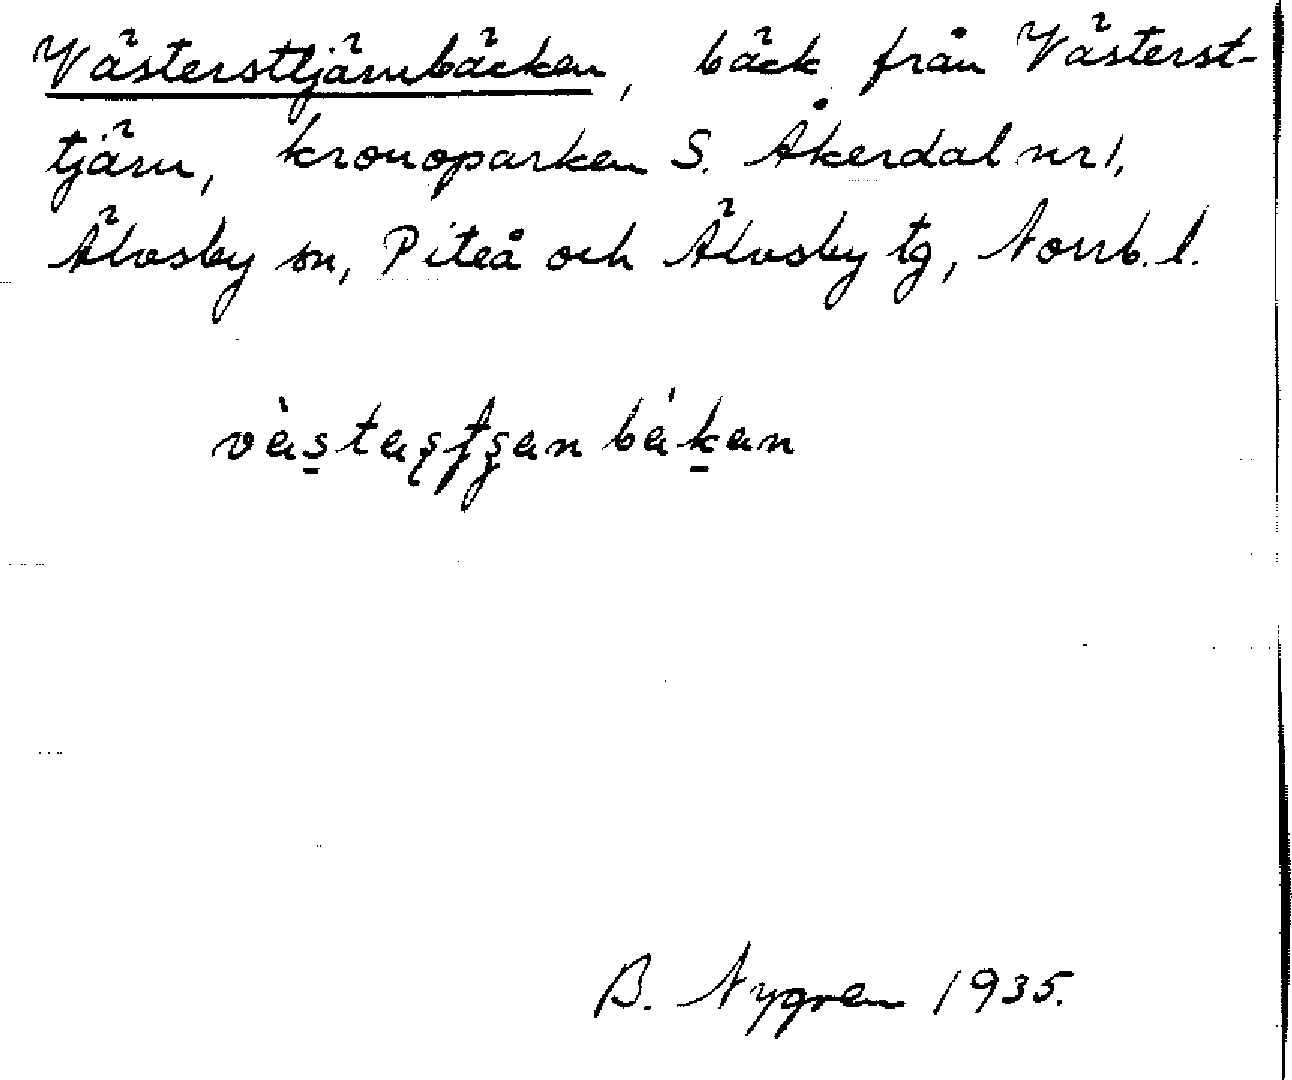 Västersttjärnbäcken, bäck från Västerst-
tjärn, kronoparken S. Åkerdal nr 1,
Älvsby sn, Piteå och Älvsby tg, Norrb. l.
B. Nygren 1935.